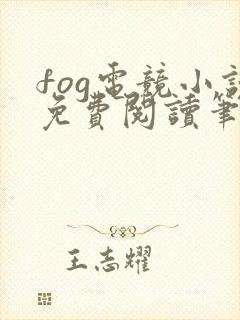 fog電競小說
免費閱讀筆
王志耀